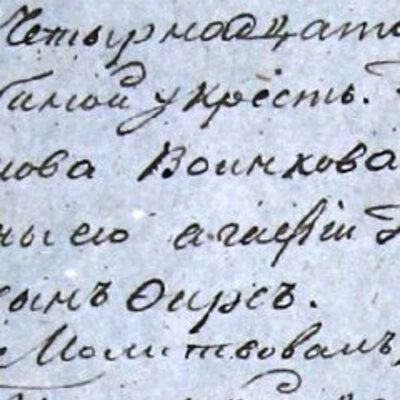 Четырнадцато
бимой у крестъ.
нова Воинкова
ны его агафіи
сынъ Фирсъ.
Молитвовалъ